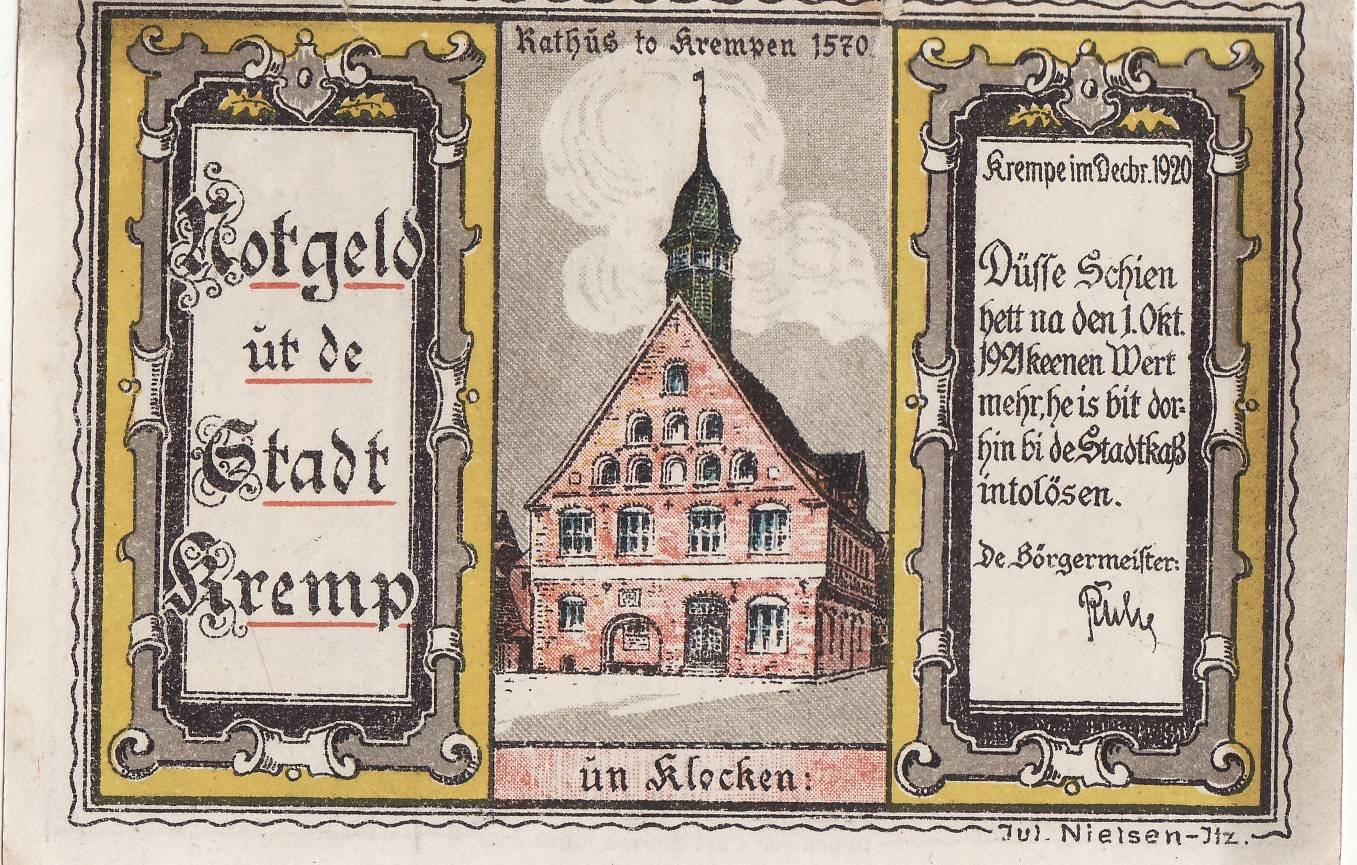 Rathús to Krempen 1570.
Notgeld
út de
Stadt
Kremp
un Klocken:
Krempe im Decbr. 1920
Düsse Schien
hett na den 1. Okt.
1921 keenen Wert
mehr, he is bit dor-
hin bi de Stadtkaß
intolösen.
De Börgermeister:
Jul. Nielsen-Itz.